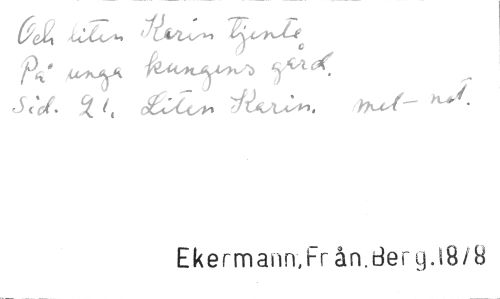 Och liten Karin tjente
På unga kungens gård.
Sid. 21. Liten Karin. mel-not.
Ekermann, Från Berg. 1878